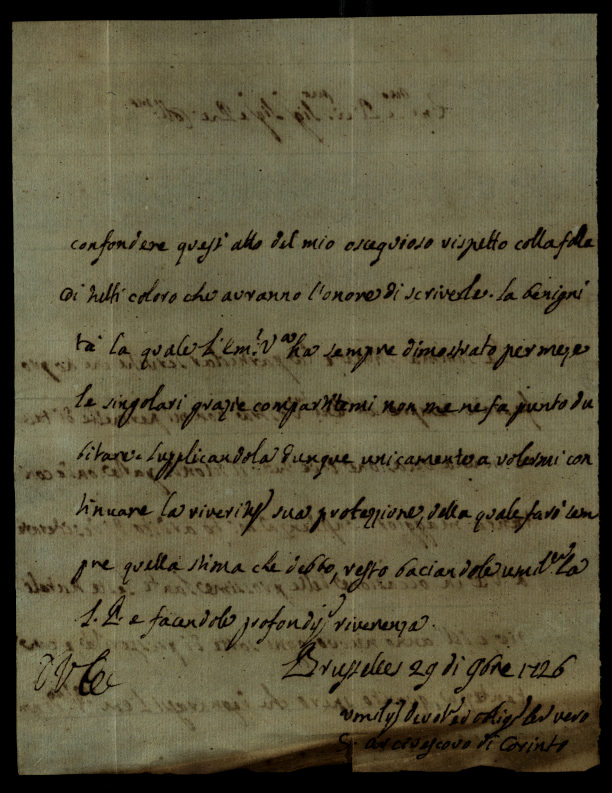 confondere quest'atto del mio ossequioso rispetto colla folla
di tutti coloro che avranno l'onore di scriverle. La benigni
tà la quale L'Em.ª V.ra ha sempre dimostrato per me, e
le singolari grazie compartitemi non me ne fa punto du
bitare. Supplicandola dunque unicamente a volermi con
tinuare la riverit.ma sua protezzione, della quale farò sem
pre quella stima che debbo, resto baciandole umil.te la
S. P. e facendole profondiss.a riverenza.
Brusselles 29 di 9bre 1726
V. Em.
umiliss. devot. ed oblig. ser. vero
G. arcivescovo di Corinto